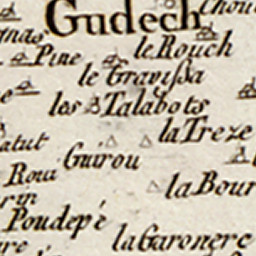 Gudech
Pine le Rouch
le Gravissa
les Talabots
la Treze
Guirou
Roui
la Bour
Poudepé
la Garonere